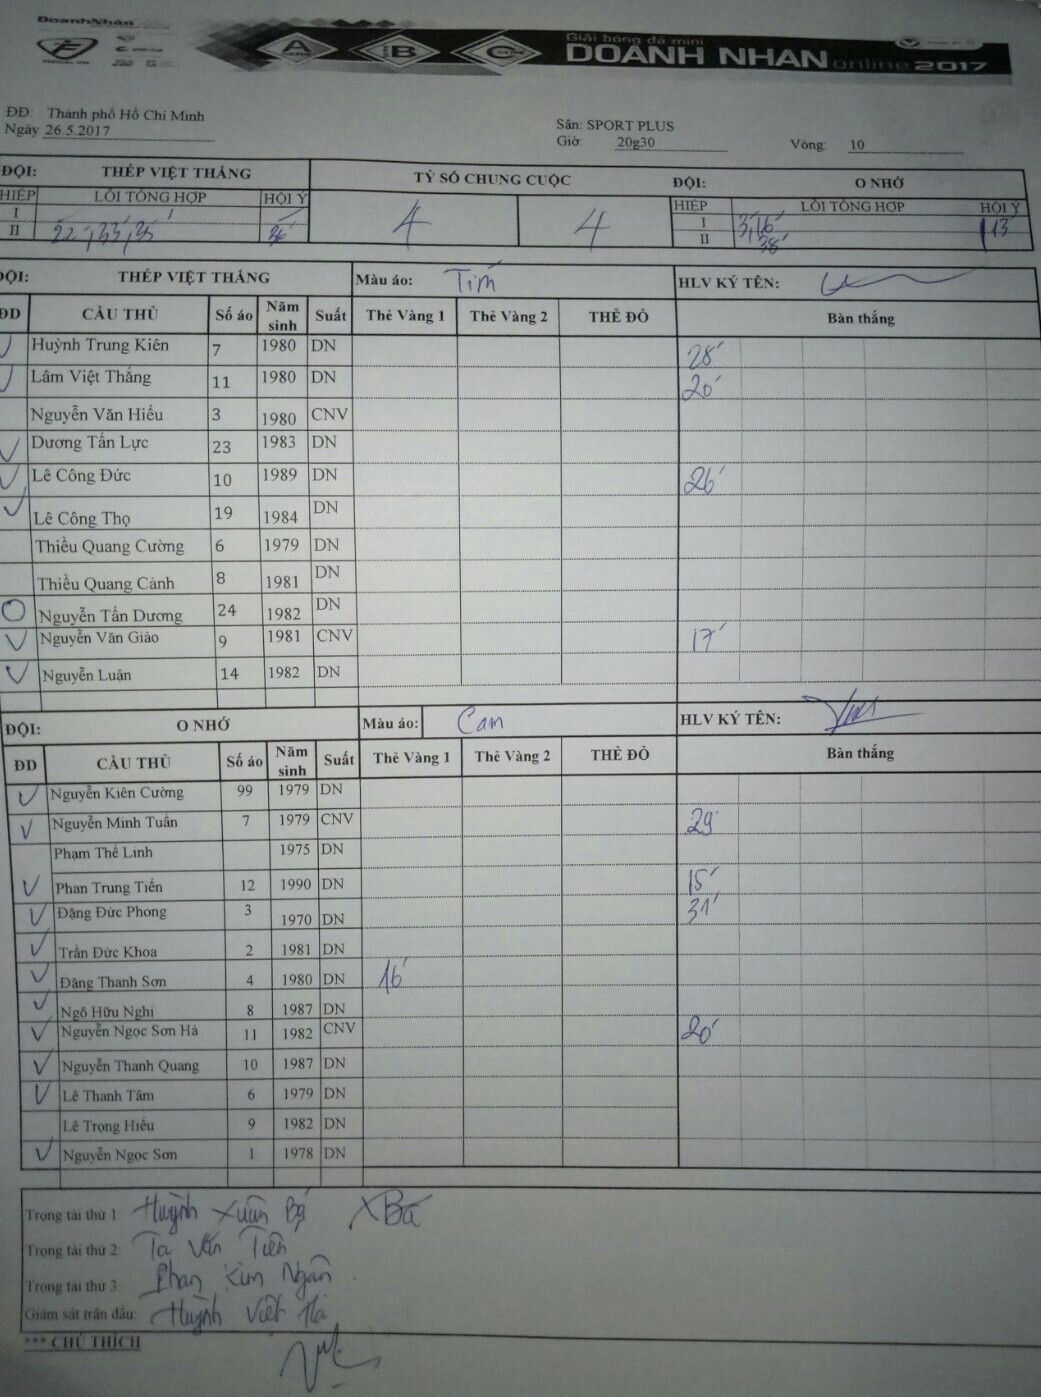 DoanhNhân
A
B
C
Giải bóng đá mini
DOANH NHAN online 2017
ĐĐ: Thành phố Hồ Chí Minh
Ngày 26.5.2017
Sân: SPORT PLUS
Giờ: 20g30 Vòng: 10
ĐỘI: THÉP VIỆT THẮNG TỶ SỐ CHUNG CUỘC ĐỘI: O NHỚ
HIỆP LỖI TỔNG HỢP HỘI Ý 4 4 HIỆP LỖI TỔNG HỢP HỘI Ý
I I 3,16' 13
II 22',33',35' 36' II 38'
ĐỘI: THÉP VIỆT THẮNG Màu áo: Tím HLV KÝ TÊN:
ĐD CẦU THỦ Số áo Năm sinh Suất Thẻ Vàng 1 Thẻ Vàng 2 THẺ ĐỎ Bàn thắng
Huỳnh Trung Kiên 7 1980 DN 28'
Lâm Việt Thắng 11 1980 DN 20'
Nguyễn Văn Hiếu 3 1980 CNV
Dương Tấn Lực 23 1983 DN
Lê Công Đức 10 1989 DN 26'
Lê Công Thọ 19 1984 DN
Thiều Quang Cường 6 1979 DN
Thiều Quang Cảnh 8 1981 DN
Nguyễn Tấn Dương 24 1982 DN
Nguyễn Văn Giào 9 1981 CNV 17'
Nguyễn Luận 14 1982 DN
ĐỘI: O NHỚ Màu áo: Cam HLV KÝ TÊN:
ĐD CẦU THỦ Số áo Năm sinh Suất Thẻ Vàng 1 Thẻ Vàng 2 THẺ ĐỎ Bàn thắng
Nguyễn Kiên Cường 99 1979 DN
Nguyễn Minh Tuấn 7 1979 CNV 29'
Phạm Thế Linh 1975 DN
Phan Trung Tiến 12 1990 DN 15'
Đặng Đức Phong 3 1970 DN 31'
Trần Đức Khoa 2 1981 DN
Đăng Thanh Sơn 4 1980 DN 16'
Ngô Hữu Nghị 8 1987 DN
Nguyễn Ngọc Sơn Hà 11 1982 CNV 20'
Nguyễn Thanh Quang 10 1987 DN
Lê Thanh Tâm 6 1979 DN
Lê Trọng Hiếu 9 1982 DN
Nguyễn Ngọc Sơn 1 1978 DN
Trọng tài thứ 1: Huỳnh Xuân Bá XBá
Trọng tài thứ 2: Tạ Văn Tiên
Trọng tài thứ 3: Phan Kim Ngân
Giám sát trận đấu: Huỳnh Việt Hà
*** CHÚ THÍCH